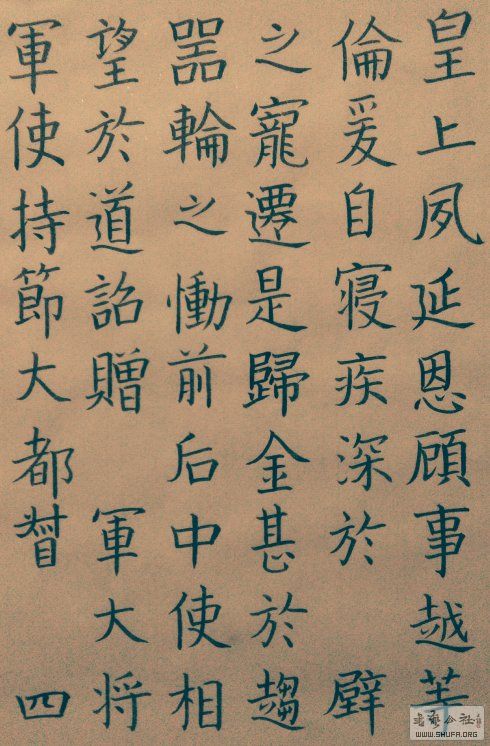 皇上夙延恩顧事越
倫爰自寝疾深於
之寵遷是歸金甚於趨
噐輪之慟前后中使相
望於道詔贈 軍大将
軍使持節大都督 四
公社
WWW.SHUFA.ORG